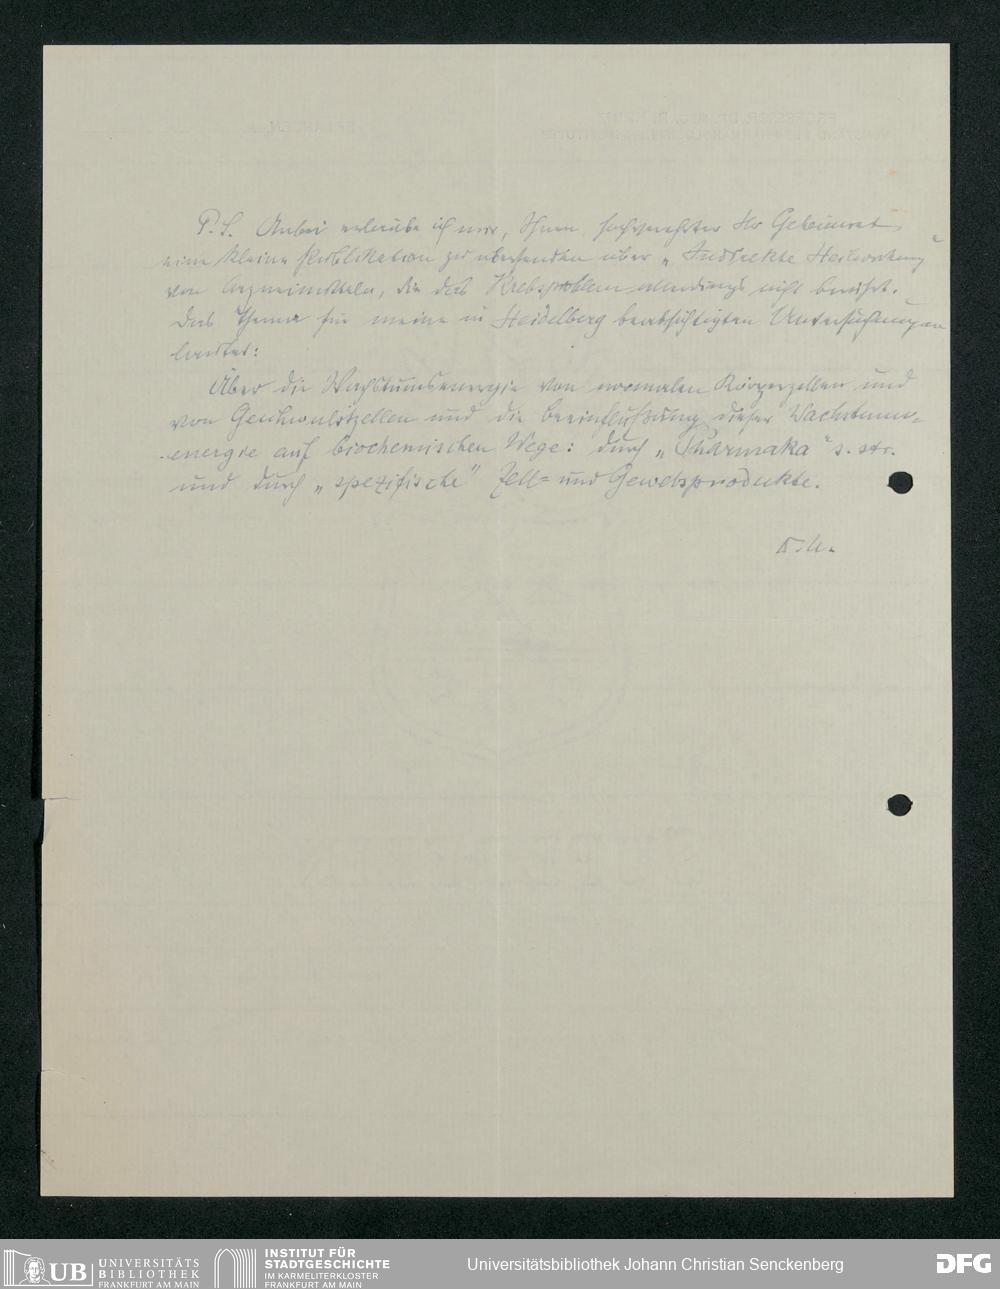 P.S. Anbei erlaube ich mir, Ihnen, hochverehrter Hr Geheimrat,
eine kleine Publikation zu übersenden über „Indirekte Heilwirkung"
von Arzneimitteln, die das Krebsproblem allerdings nicht berührt.
Das Thema für meine in Heidelberg beabsichtigten Untersuchungen
lautet:
Über die Wachstumsenergie von normalen Körperzellen und
von Geschwulstzellen und die Beeinflussung dieser Wachstums-
energie auf biochemischen Wege: durch „Pharmaka" s. str.
und durch „spezifische" Zell- und Gewebsprodukte.
UB UNIVERSITÄTS
BIBLIOTHEK
FRANKFURT AM MAIN
INSTITUT FÜR
STADTGESCHICHTE
IM KARMELITERKLOSTER
FRANKFURT AM MAIN
Universitätsbibliothek Johann Christian Senckenberg
DFG